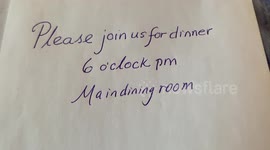 Please join us for dinner
6 o'clock pm
Main dining room